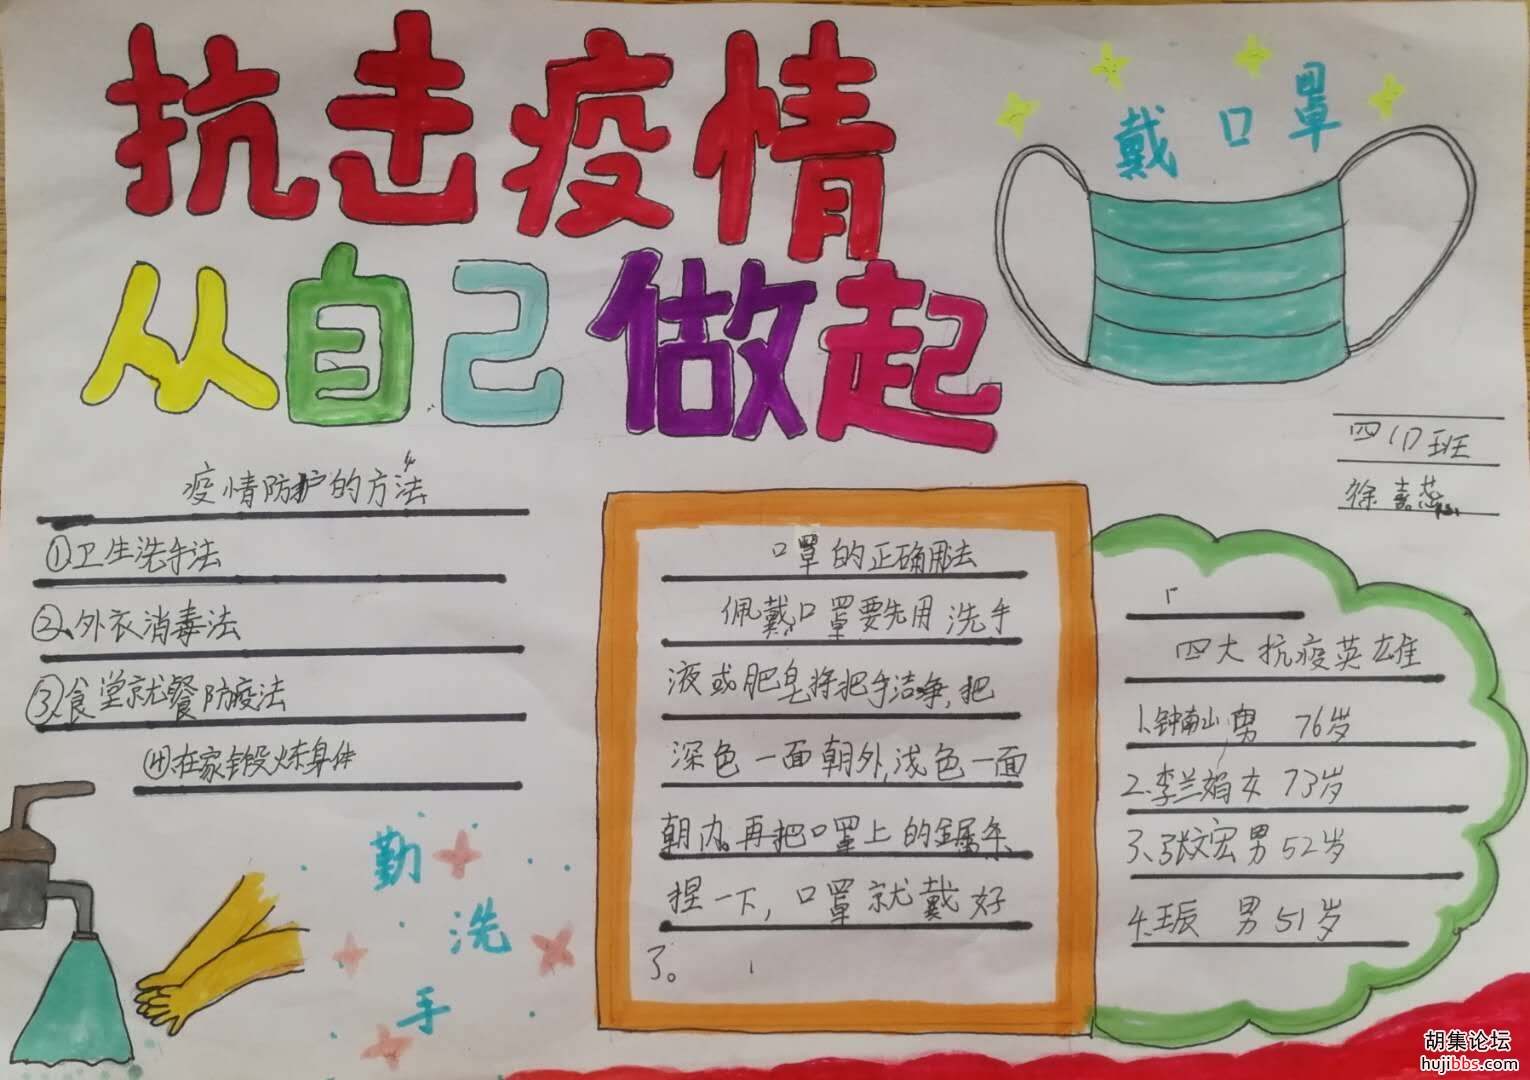 抗击疫情
从自己做起
戴口罩
四(1)班
徐嘉
疫情防护的方法
①卫生洗手法
②、外衣消毒法
③食堂就餐防疫法
④在家锻炼身体
勤洗手
口罩的正确用法
佩戴口罩要先用洗手
液或肥皂将把手洁净,把
深色一面朝外,浅色一面
朝内。再把口罩上的金属条
捏一下,口罩就戴好
了。
四大抗疫英雄
1、钟南山 男 76岁
2、李兰娟 女 73岁
3、张文宏 男 52岁
4、王辰 男 51岁
胡集论坛
hujibbs.com